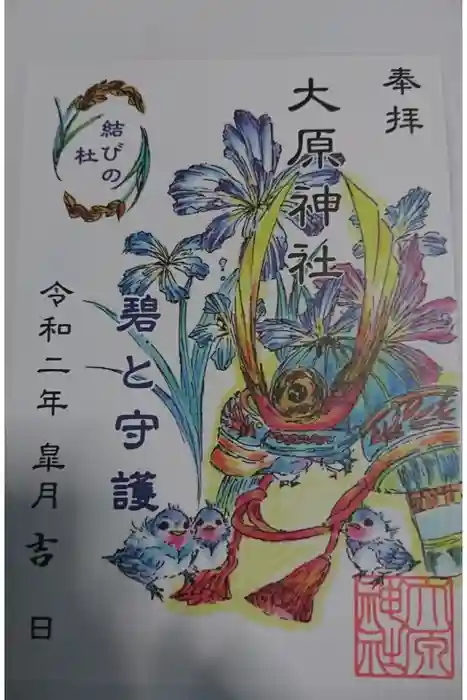 奉拝
大原神社
結びの
杜
碧と守護
令和二年 皐月 吉 日
大原
神社